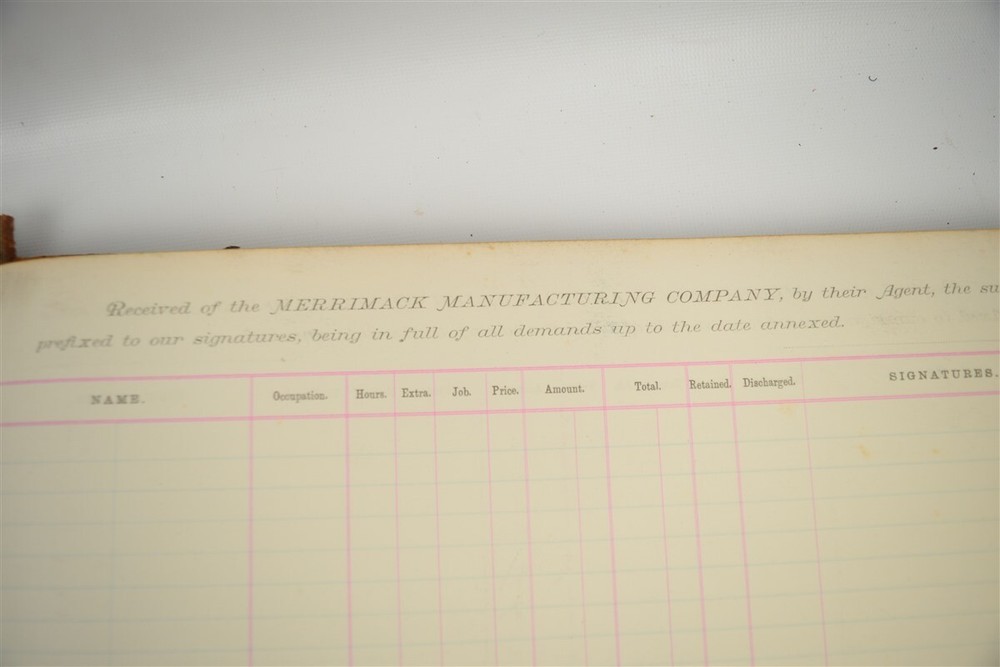 Received of the MERRIMACK MANUFACTURING COMPANY, by their Agent, the su
prefixed to our signatures, being in full of all demands up to the date annexed.
NAME. Occupation. Hours. Extra. Job. Price. Amount. Total. Retained. Discharged. SIGNATURES.